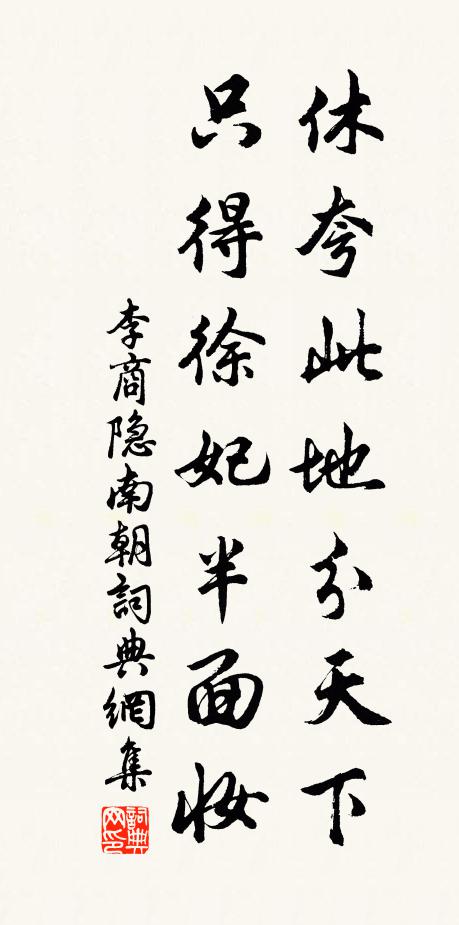 休夸此地分天下
只得徐妃半面妆
李商隐南朝詞典網集
詞典網印